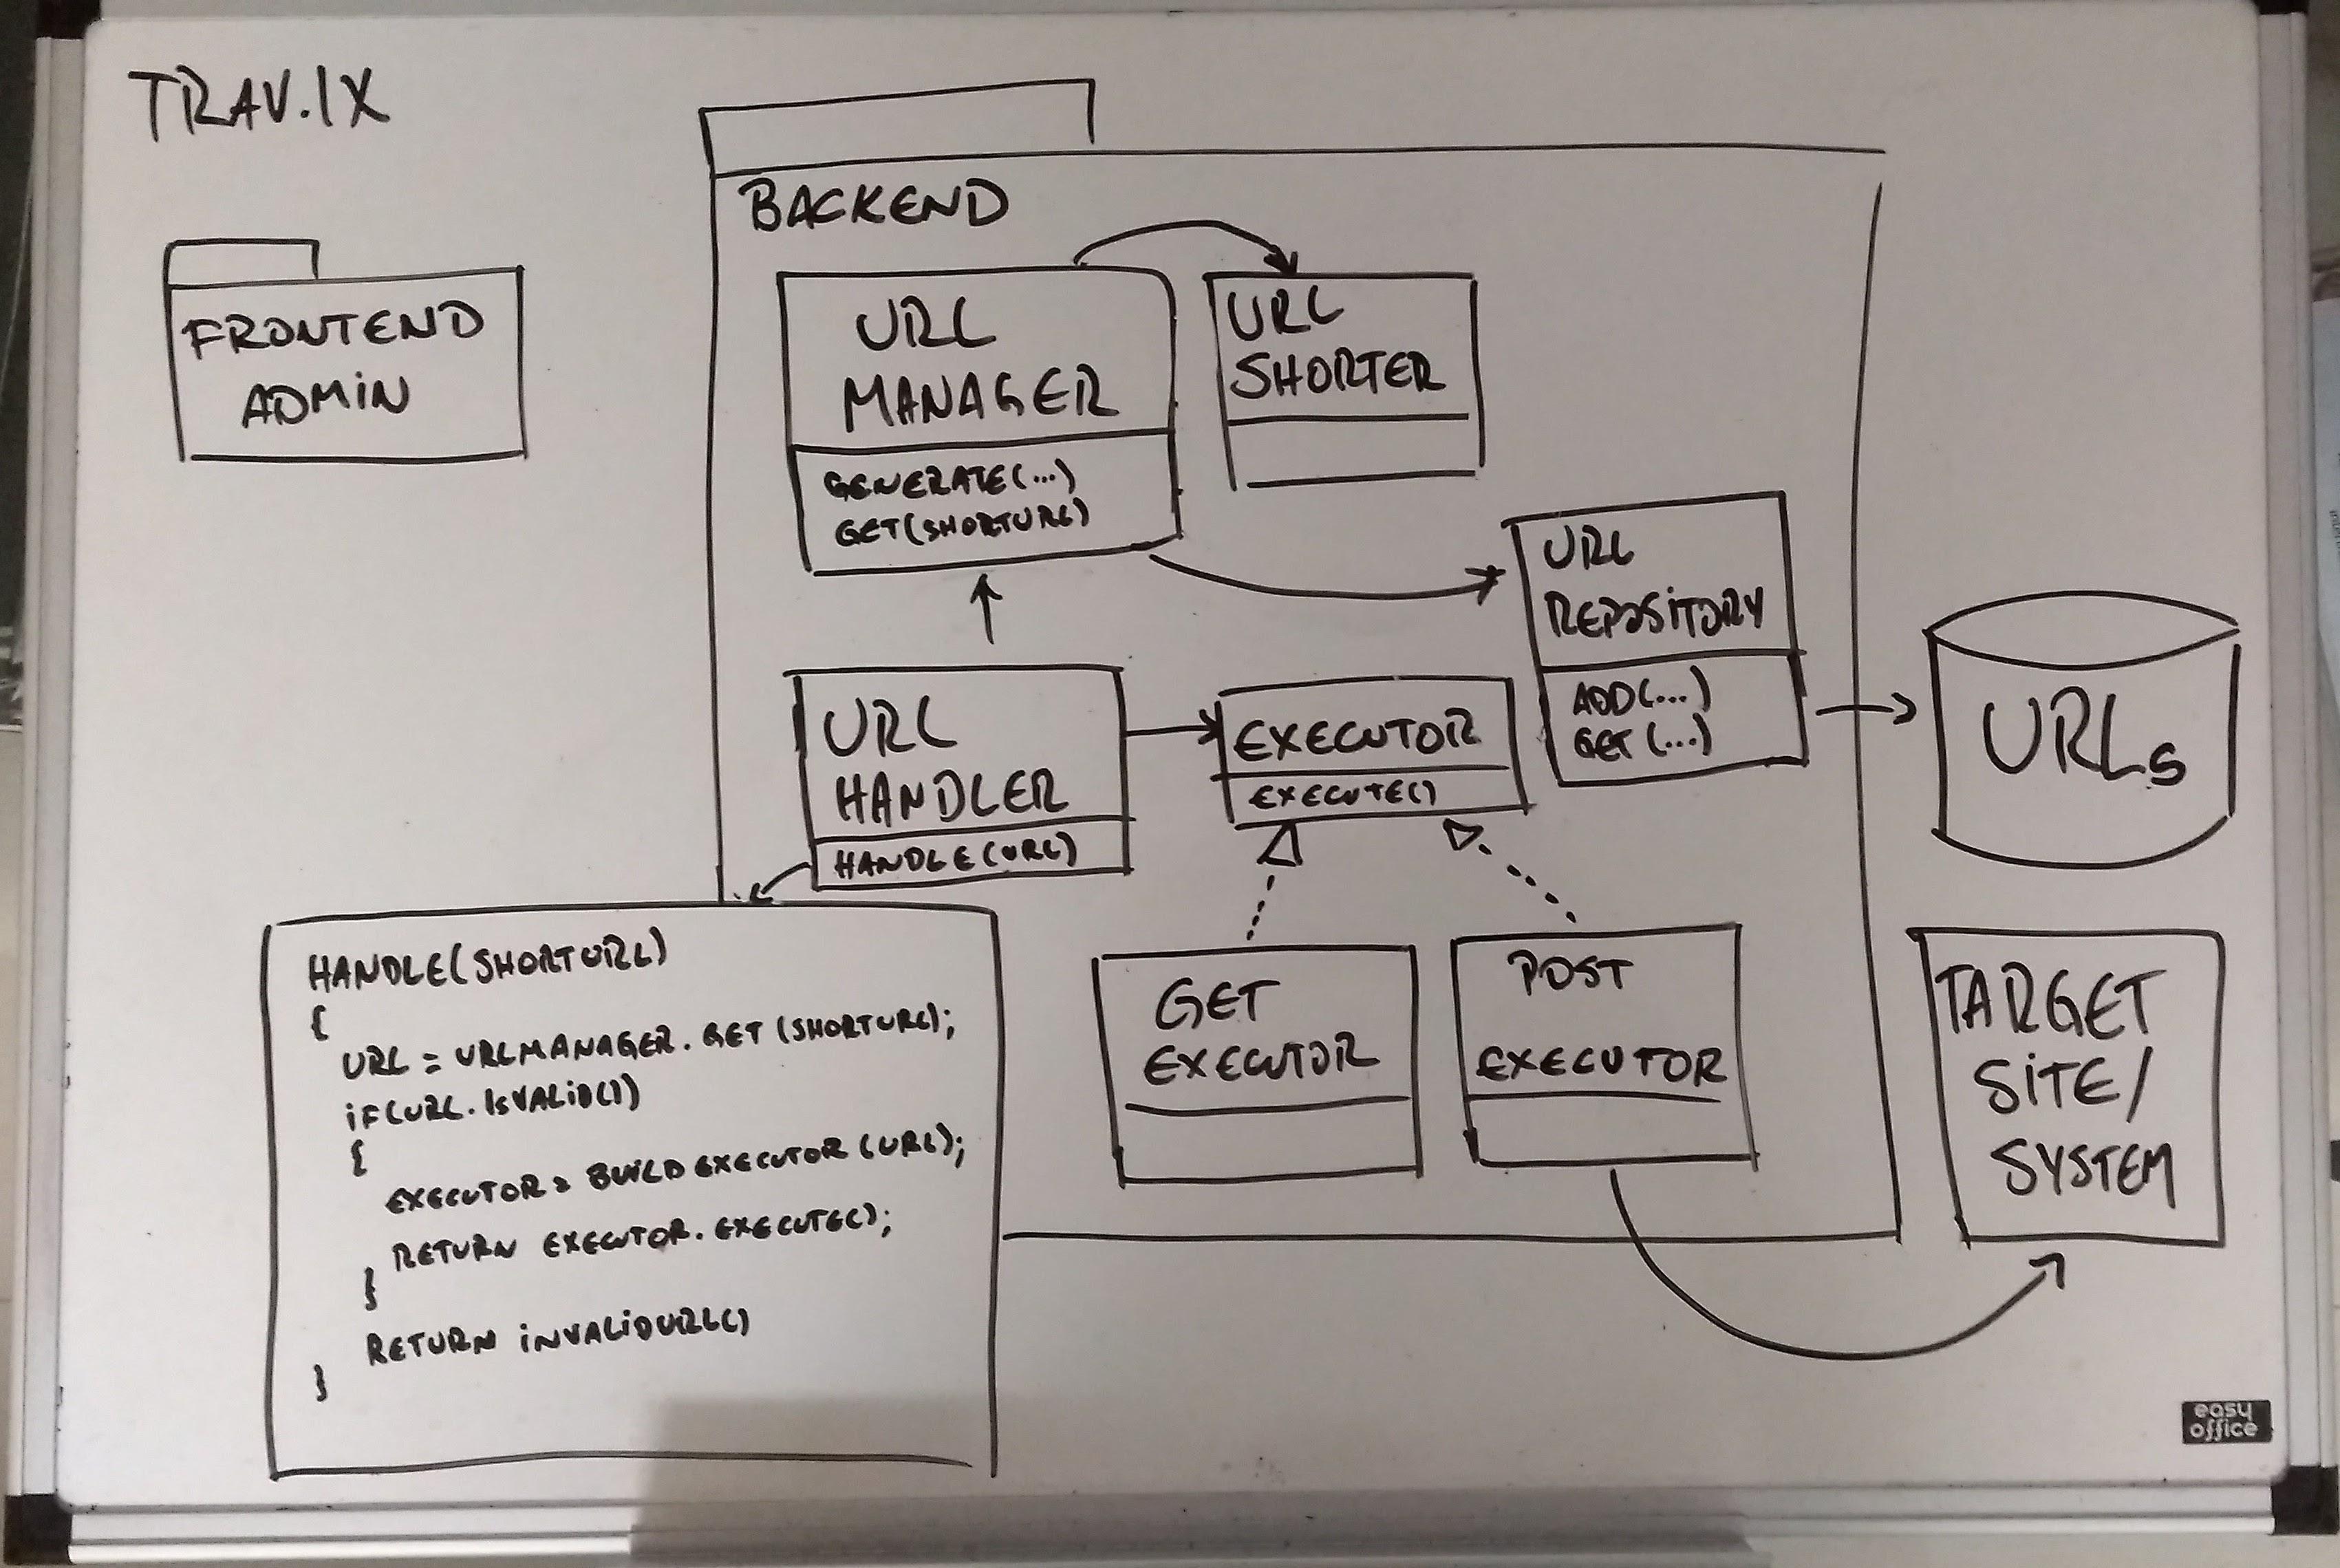 TRAV.IX
BACKEND
FRONTEND
ADMIN
URL
MANAGER
GENERATE(...)
GET(SHORTURL)
URL
SHORTER
URL
REPOSITORY
ADD(...)
GET(...)
URLs
URL
HANDLER
HANDLE(URL)
EXECUTOR
EXECUTE()
GET
EXECUTOR
POST
EXECUTOR
TARGET
SITE/
SYSTEM
HANDLE(SHORTURL)
{
URL = URLMANAGER.GET(SHORTURL);
iF(URL.ISVALID())
{
EXECUTOR = BUILDEXECUTOR(URL);
RETURN EXECUTOR.EXECUTE();
}
RETURN INVALIDURL()
}
easy
office